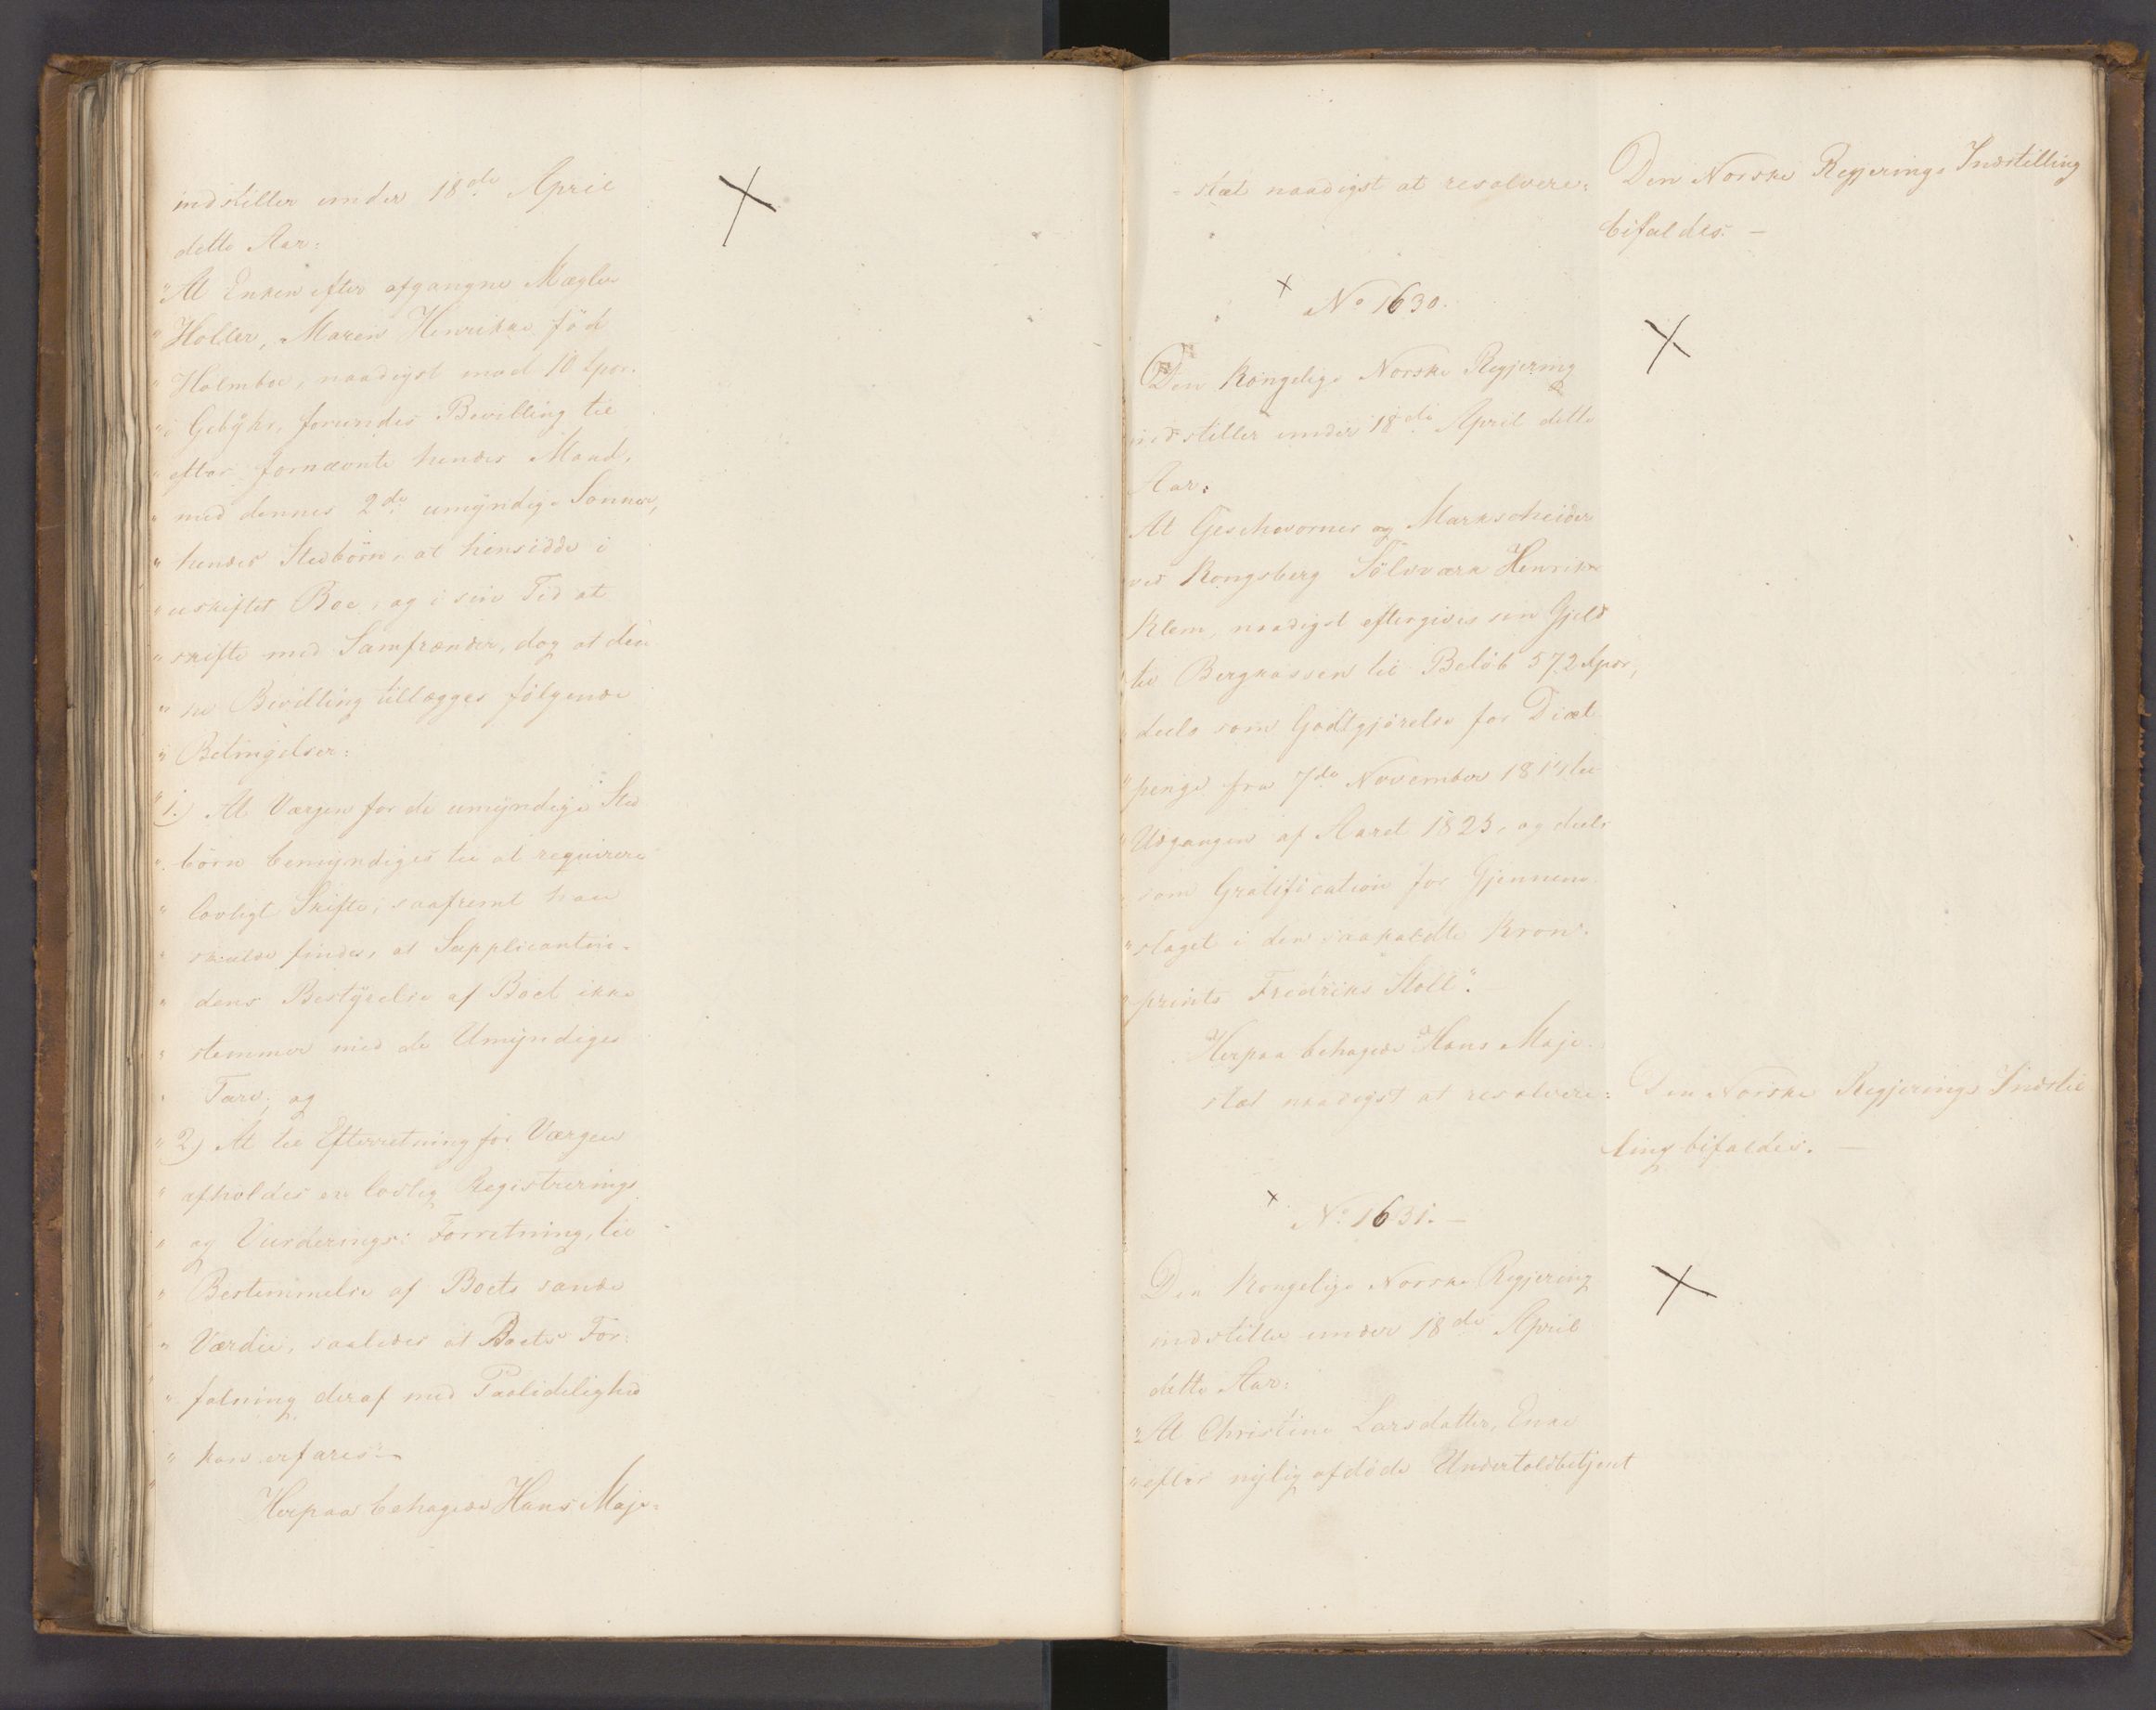 indstiller under 18de April
dette Aar:
"At Enken efter afgangne Mægler
"Holler, Maren Henrikke fød
"Holmboe, naadigst mod 10 Spdr.
"i Gebÿhr, forundes Bevilling til
"efter fornævnte hendes Mand,
"med dennes 2de umÿndige Sønner,
"hendes Stedbörn, at hensidde i
"uskiftet Boe, og i sin Tid at
"skifte med Samfrænder, dog at den
"ne Bevilling tillægges følgende
"Betingelser:
"1.) At Værgen for de umÿndige Sted
"børn bemÿndiges til at requirere
"lovligt Skifte, saafremt han
"skulde finde, at Supplicantin-
"dens Bestÿrelse af Boet ikke
"stemmer med de Umÿndiges
"Tarv; og
"2) At til Efterretning for Værgen
"afholdes en lovlig Registrerings
"og Vurderings: Forretning, til
"Bestemmelse af Boets sande
"Værdie, saaledes at Boets For-
"fatning deraf med Paalidelighed
"kan erfares".—
Herpaa behagede Hans Maje-
-stæt naadigst at resolvere:
Den Norske Regjerings Indstilling
bifaldes. —
No 1630.
Den Kongelige Norske Regjering
indstiller under 18de April dette
Aar:
At Geschworner og Markscheider
ved Kongsberg Sölvværk Henrik
Klem, naadigst eftergives sin Gjeld
"til Bergkassen til Beløb 572 Spdr,
"deels som Godtgjørelse for Diæt
"penge fra 7de November 1814 til
"Udgangen af Aaret 1823, og deels
"som Gratification for Gjennem
"slaget i den saakaldte Kron-
"prints Fredriks Stoll".
Herpaa behagede Hans Maje-
stæt naadigst at resolvere:
Den Norske Regjerings Indstil
ling bifaldes. —
No 1631. —
Den Kongelige Norske Regjering
indstiller under 18de April
dette Aar:
"At Christine Larsdatter, Enke
"efter nÿlig afdøde Undertoldbetjent